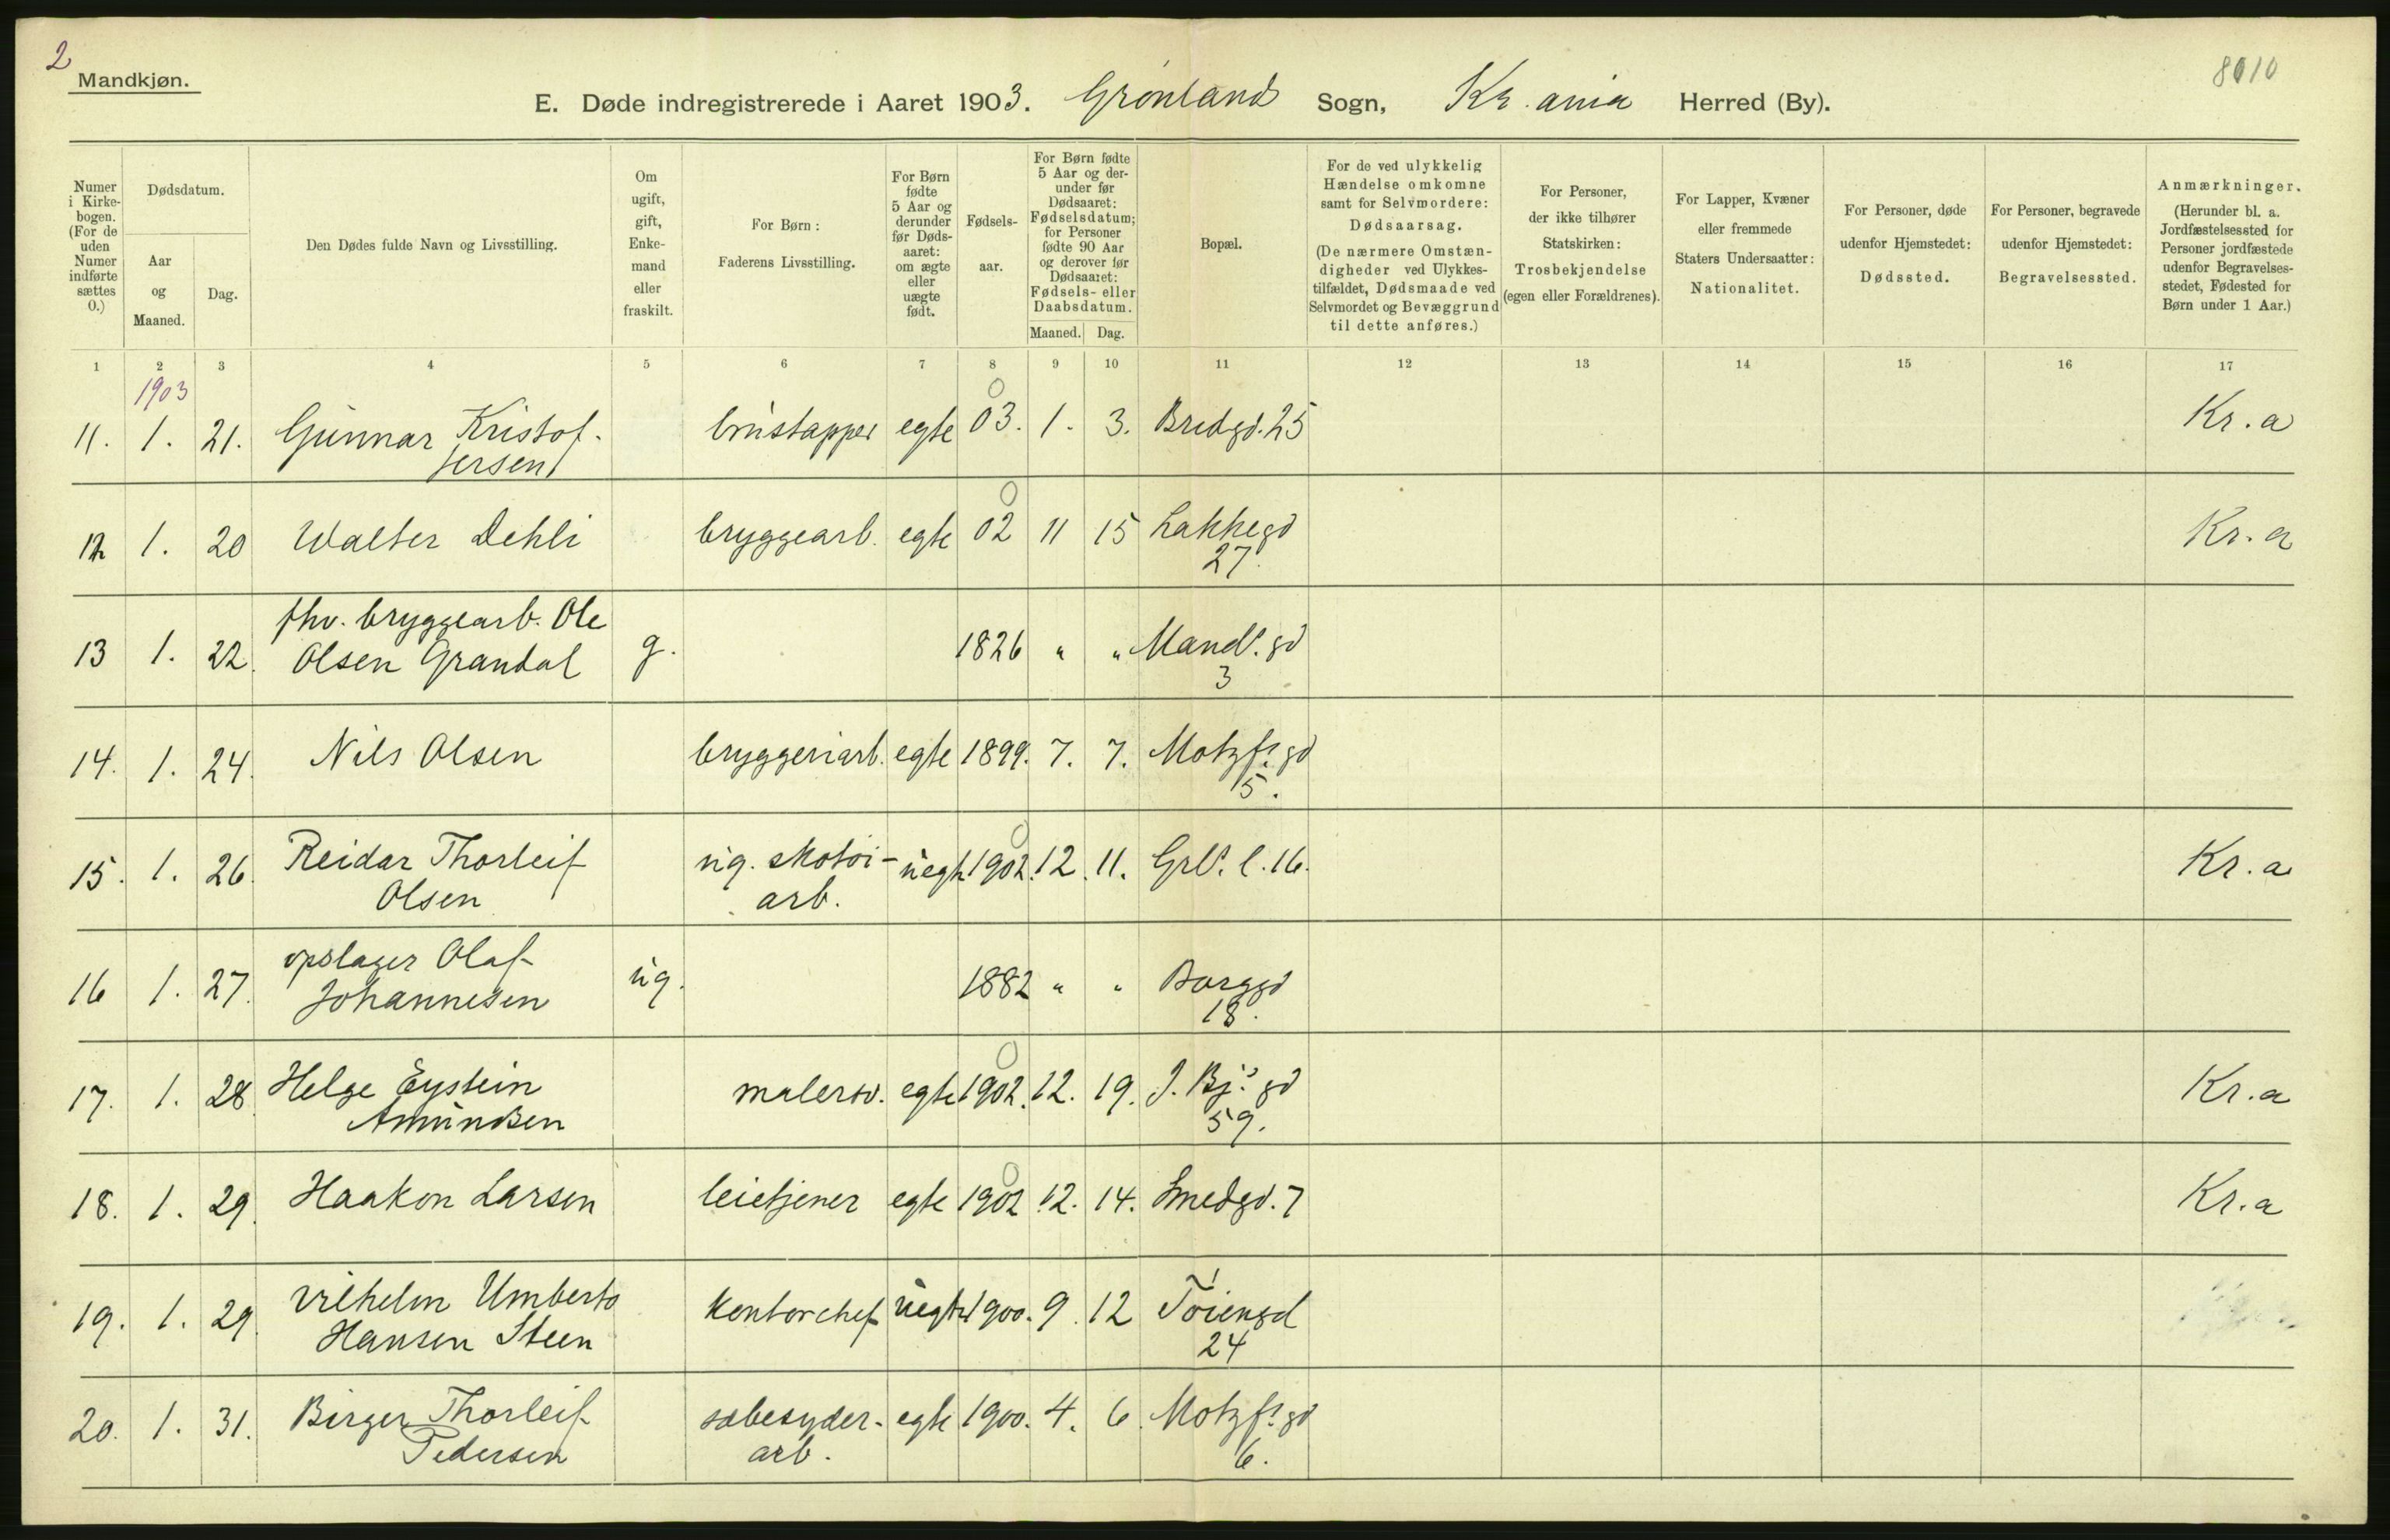 2
Mandkjøn.
8010
E. Døde indregistrerede i Aaret 1903. Grønland Sogn, Kr.ania Herred (By).
Numer i Kirke-bogen. (For de uden Numer indførte sættes 0.)
Dødsdatum.
Aar og Maaned.
Dag.
Den Dødes fulde Navn og Livsstilling.
Om ugift, gift, Enke-mand eller fraskilt.
For Børn: Faderens Livsstilling.
For Børn fødte 5 Aar og derunder før Døds-aaret: om ægte eller uægte født.
Fødsels-aar.
For Børn fødte 5 Aar og der-under før Dødsaaret: Fødselsdatum; for Personer fødte 90 Aar og derover før Dødsaaret: Fødsels- eller Daabsdatum.
Maaned. Dag.
Bopæl.
For de ved ulykkelig Hændelse omkomne samt for Selvmordere: Dødsaarsag. (De nærmere Omstæn-digheder ved Ulykkes-tilfældet, Dødsmaade ved Selvmordet og Bevæggrund til dette anføres.)
For Personer, der ikke tilhører Statskirken: Trosbekjendelse (egen eller Forældrenes).
For Lapper, Kvæner eller fremmede Staters Undersaatter: Nationalitet.
For Personer, døde udenfor Hjemstedet: Dødssted.
For Personer, begravede udenfor Hjemstedet: Begravelsessted.
Anmærkninger. (Herunder bl. a. Jordfæstelsessted for Personer jordfæstede udenfor Begravelses-stedet, Fødested for Børn under 1 Aar.)
1 2 3 4 5 6 7 8 9 10 11 12 13 14 15 16 17
1903
11. 1. 21. Gunnar Kristof- egte 03. 1. 3. Bredgd. 25 Kr.a
fersen
12 1. 20 Walter Dehli bryggearb. egte 02 11 15 Lakkegd Kr.a
27.
fhv. bryggearb. Ole
13 1. 22. Olsen Grandal g. 1826 " " Mandl. gd
3
14. 1. 24. Nils Olsen bryggeriarb. egte 1899. 7. 7. Motzfs. gd
5.
15. 1. 26. Reidar Thorleif ug. skotøi- uegte 1902. 12. 11. Grl. l. 16. Kr.a
Olsen arb.
opslager Olaf
16 1. 27. Johannesen ug. 1882 " " Borggd
18.
17. 1. 28 Helge Eystein malersv. egte 1902. 12. 19. J. Bj.s gd Kr.a
Amundsen 59.
18. 1. 29. Haakon Larsen leietjener egte 1902 12. 14. Smedgd. 7 Kr.a
19. 1. 29. Vilhelm Umberto kontorchef uegte 1900. 9. 12 Tøiengd
Hansen Steen 24
20. 1. 31. Birger Thorleif sæbesyder- egte 1900. 4. 6 Motzfs. gd
Pedersen arb. 6.